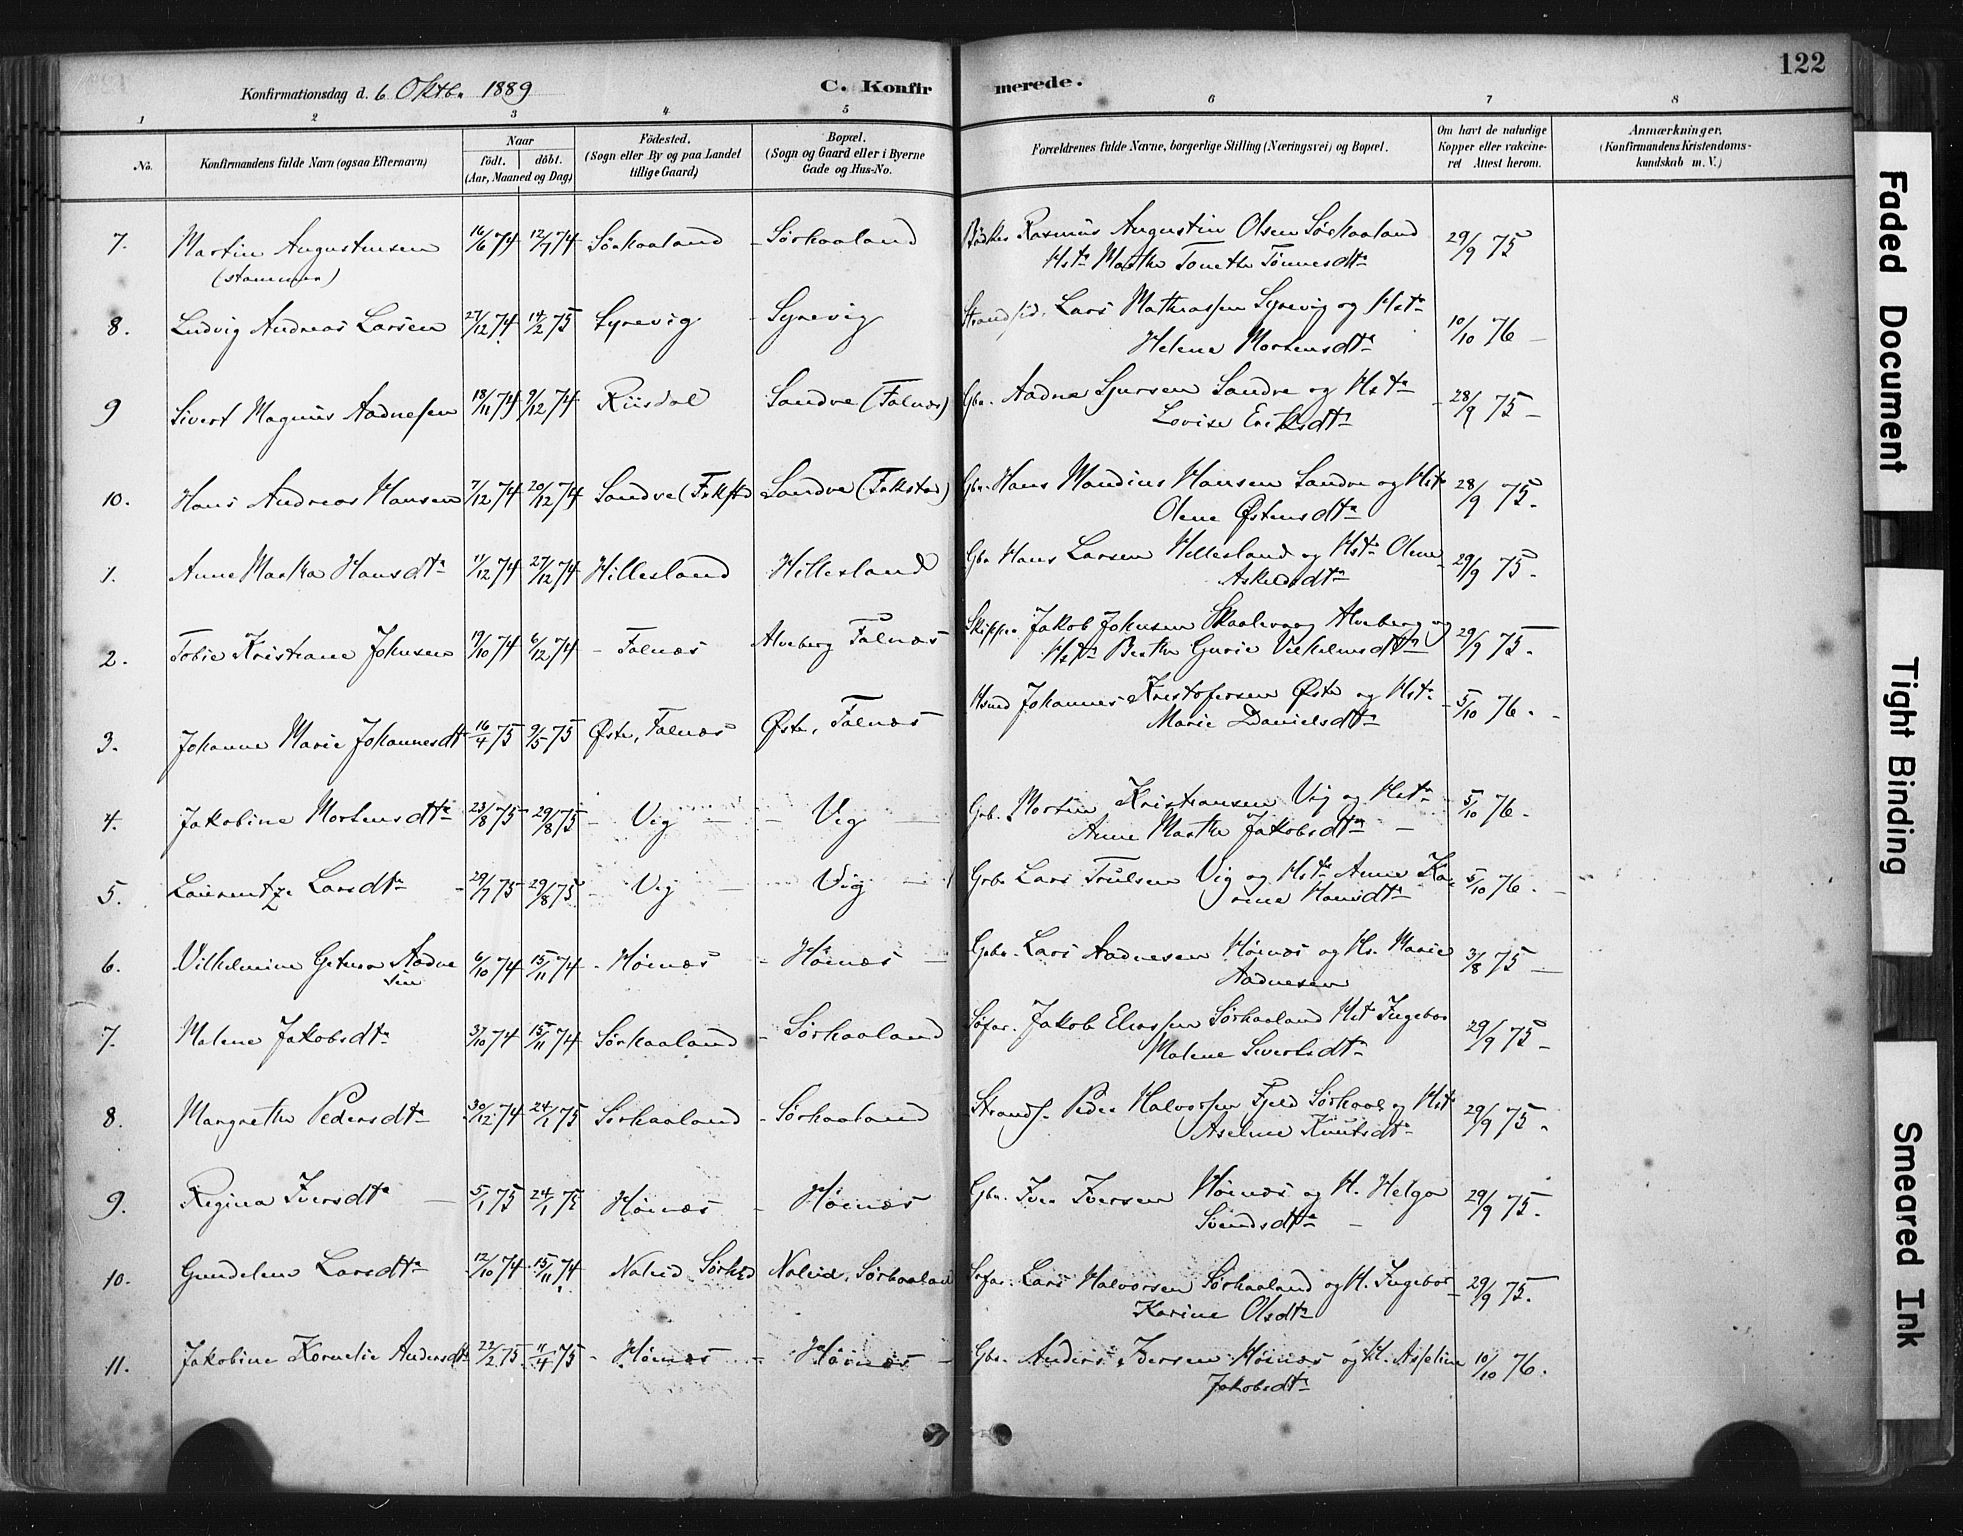 122
Konfirmationsdag d. 6 Oktb. 1889 C. Konfirmerede.
1 2 3 4 5 6 7 8
No. Konfirmandens fulde Navn (ogsaa Efternavn) Naar födt. döbt. (Aar, Maaned og Dag) Födested. (Sogn eller By og paa Landet tillige Gaard) Bopæl. (Sogn og Gaard eller i Byerne Gade og Hus-No. Forældrenes fulde Navne, borgerlige Stilling (Næringsvei) og Bopæl. Om havt de naturlige Kopper eller vakcineret Attest herom. Anmærkninger. (Konfirmandens Kristendomskundskab m. V.)
7. Martin Augustinsen 16/6 74 12/7 74 Sørhaaland - Sørhaaland Bødker Rasmus Augustin Olsen Sørhaaland 29/9 75
(stammer) Hst. Marthe Tonette Tönnesdtr
8. Ludvig Andreas Larsen 27/12 74 14/2 75 Syrevig - Syrevig Strandsid. Lars Mathiassen Syrevig og Hst. 10/10 76 -
Helene Mortensdtr
9 Sivert Magnus Aadnesen 18/11 74 9/12 74 Riisdal Sandve (Falnæs) Gbr. Aadne Sjursen Sandve og Hst. - 28/9 75 -
Lovise Eriksdtr
10. Hans Andreas Hansen 7/12 74 20/12 74 Sandve (Falnæs) Gbr. Hans Mandius Hansen Sandve og Hst. 28/9 75.
Olene Østensdtr
1. Anne Marta Hansdtr 11/12 74 27/12 74 Hillesland Hillesland Gbr Hans Larsen Hillesland og Hst. Olene 29/9 75.
2. Tobie Kristiane Johnsen 19/10 74 6/12 74 - Falnæs Alveberg Falnæs Skipper Jakob Johnsen Skaalevaag Alveberg og 29/9 75.
Hst. Berthe Gurie Vilhelmsdtr
3. Johanne Marie Johannesdtr 16/4 75 9/5 75 Østr, Falnæs Østr, Falnæs Hsmd Johannes Kristofersen Østr og Hst. - 5/10 76. -
Marie Danielsdtr
4. Jakobine Mortensdtr 23/8 75 29/8 75 - Vig - - Vig - Grb. Morten Kristiansen Vig og Hst. - 5/10 76.
Anne Marthe Jakobsdtr -
5. Laurentze Larsdtr - 29/7 75 29/8 75 - Vig - Vig - Grb. Lars Trulsen Vig og Hst. Anne Ka- 5/10 76. -
rine Hansdtr
6. Vilhelmine Getina Aadne 6/10 74 15/11 74 - Høinæs - Høinæs - Gbr. Lars Aadnesen Høinæs og Hs. Marie 3/8 75 -
sen Aadnesen
7. Malene Jakobsdtr 31/10 74 15/11 74 Sørhaaland - Sørhaaland Søfar. Jakob Eliassen Sørhaaland Hst Ingebor 29/9 75 -
Malene Sivertsdtr
8. Margrethe Pedersdtr 30/12 74 24/1 75 Sørhaaland - Sørhaaland Strands. Peder Halvorsen Fjeld Sørhaal og Hst 29/9 75.
Aseline Knutsdtr
9. Regina Iversdtr - 5/1 75 24/1 75 Høinæs - Høinæs Gbr. Iver Iversen Høinæs og H. Helga 29/9 75.
Svendsdtr -
10. Gundelene Larsdtr 12/10 74 15/11 74 Naleid, Sørhld Naleid, Sørhaaland Søfar. Lars Halvorsen Sørhaaland og H. Ingebor - 29/9 75.
Karine Olsdtr
11. Jakobine Kornelie Andersdtr 22/2 75. 11/4 75 - Høinæs - Høinæs - Gbr. Anders Iversen Høinæs og H. Asseline 10/10 76.
Jakobsdtr
Faded Document
Tight Binding
Smeared Ink